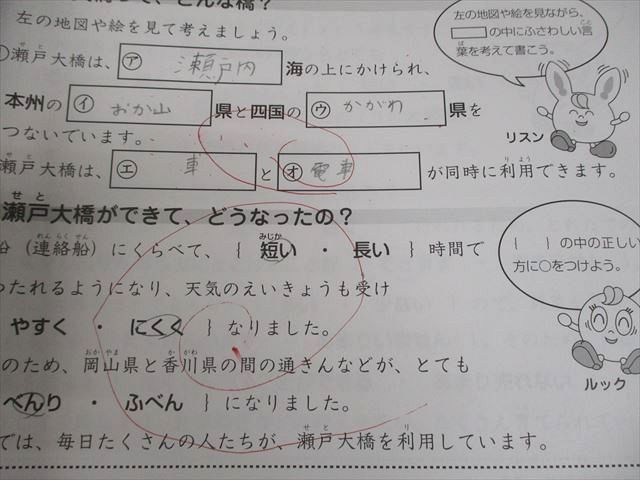 って、どんな橋？
左の地図や絵を見て考えましょう。
瀬戸大橋は、 ㋐ 瀬戸内 海の上にかけられ、
本州の ㋑ おか山 県と四国の ㋒ かがわ 県を
つないでいます。
瀬戸大橋は、 ㋓ 車 と ㋔ 電車 が同時に利用できます。
左の地図や絵を見ながら、
の中にふさわしい言
葉を考えて書こう。
リスン
瀬戸大橋ができて、どうなったの？
(連絡船)にくらべて、{ 短い ・ 長い }時間で
ったれるようになり、天気のえいきょうも受け
やすく ・ にくく }なりました。
のため、岡山県と香川県の間の通きんなどが、とても
べんり ・ ふべん }になりました。
では、毎日たくさんの人たちが、瀬戸大橋を利用しています。
{ }の中の正しい
方に○をつけよう。
ルック